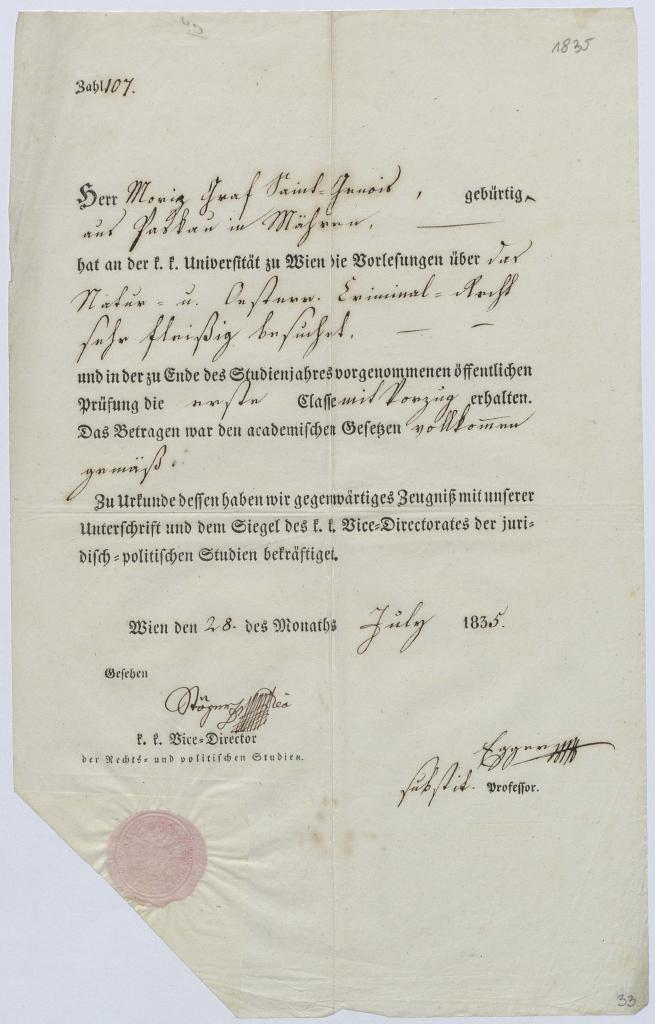 1835
Zahl 107.
Herr Moriz Graf Saint-Genois, gebürtig
aus Paskau in Mähren,
hat an der k. k. Universität zu Wien die Vorlesungen über das
Natur- u. Oesterr. Criminal-Recht
sehr fleißig besuchet,
und in der zu Ende des Studienjahres vorgenommenen öffentlichen
Prüfung die erste Classe mit Vorzug erhalten.
Das Betragen war den academischen Gesetzen vollkommen
gemäß.
Zu Urkunde dessen haben wir gegenwärtiges Zeugniß mit unserer
Unterschrift und dem Siegel des k. k. Vice-Directorates der juri-
disch-politischen Studien bekräftiget.
Wien den 28. des Monaths July 1835.
Gesehen
Stöger
k. k. Vice-Director
der Rechts- und politischen Studien.
Egger
substit. Professor.
33